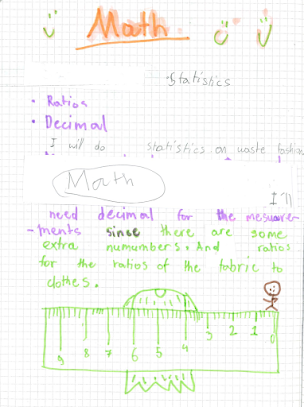 Math
Statistics
• Ratios
• Decimal
I will do statistics on waste fashion
Math
I'll
need decimal for the mesuare-
-ments since there are some
extra numumbers. And ratios
for the ratios of the fabric to
clothes.
9 8 7 6 5 4 3 2 1 0